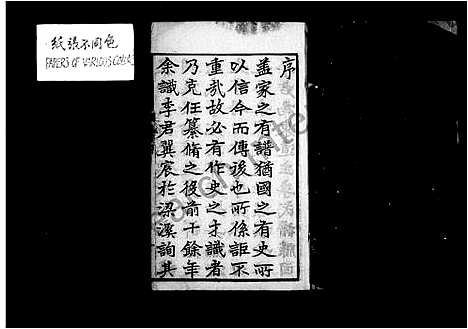 紙張不同色
PAPERS OF VARIOUS COLORS
序
蓋家之有譜猶國之有史所
以信今而傳後也所係詎不
重哉故必有作史之才識者
乃克任纂脩之後前十餘年
余識李君翼宸於梁溪詢其